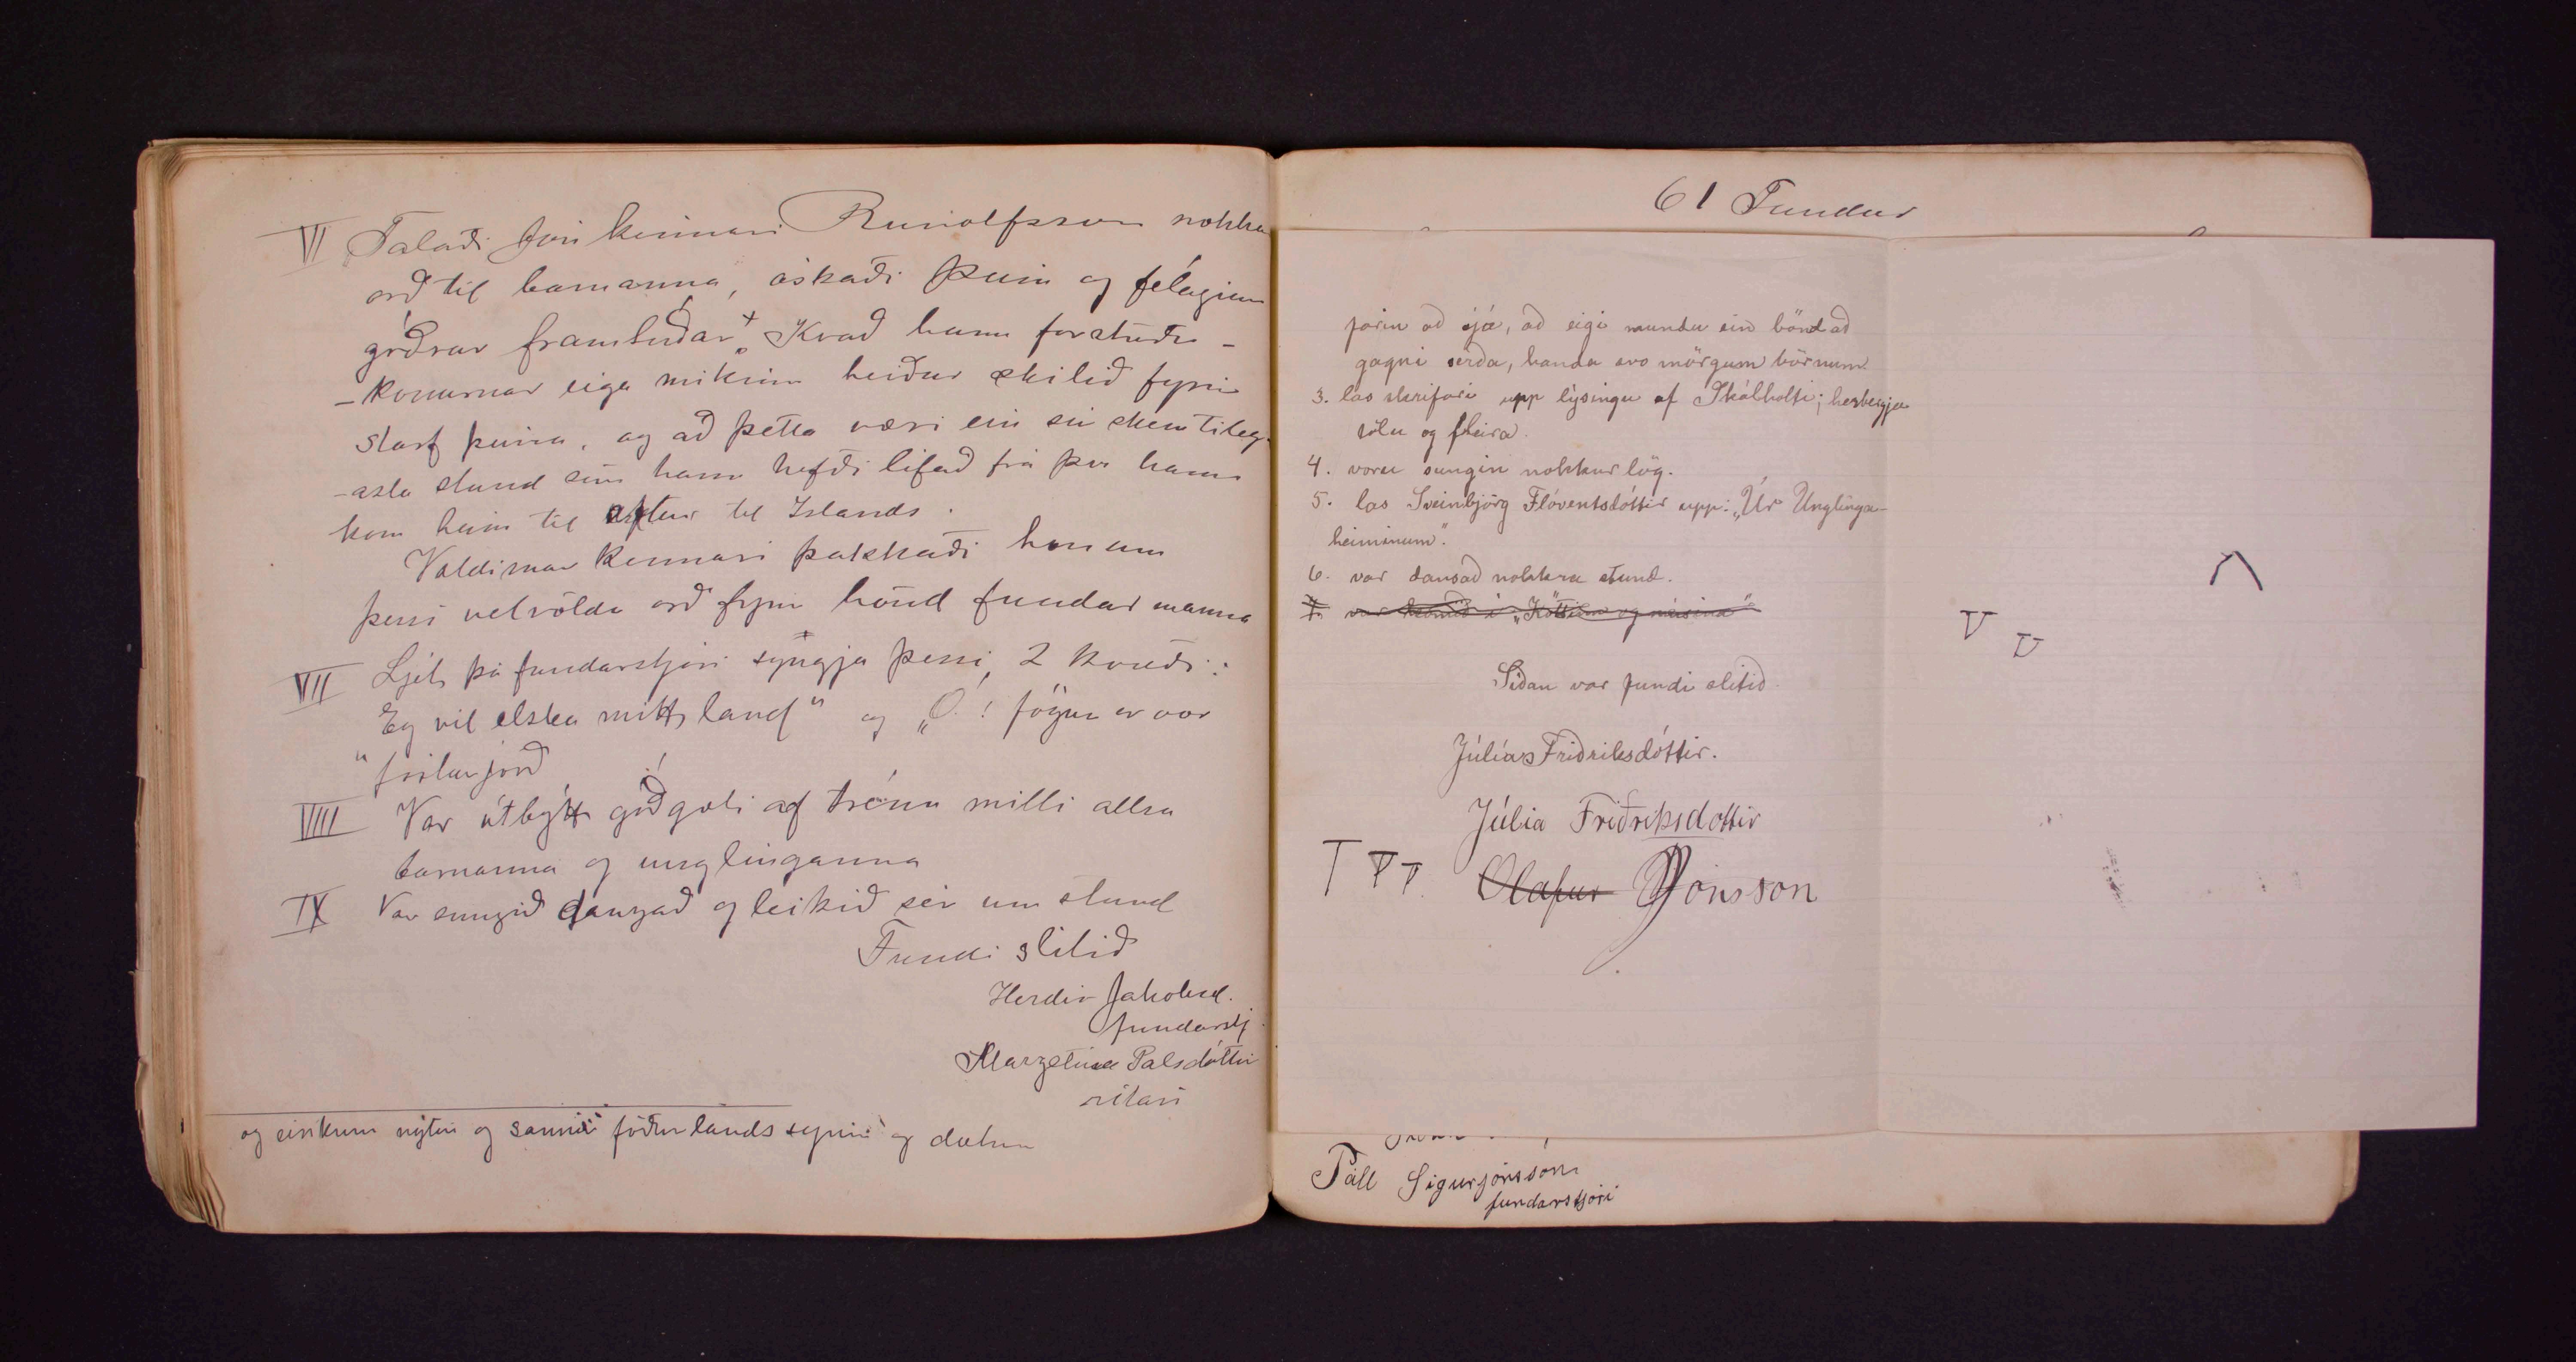 VI Talaði Jón kennari Runolfsson nokkur
orð til barnanna, óskaði þeim og félaginu
góðrar framtiðar. + Kvað hann forstöðu-
-konurnar eiga mikinn heiður skilið fyrir
starf þeirra, og að þetta væri ein sú skemtileg-
-asta stund sem hann hefði lifað frá því hann
kom heim til aftur til Islands.
Valdimar kennari þakkaði honum
þessi velvöldu orð fyrir hönd fundarmanna
VII Ljet þá fundarstjóri syngja þessi 2 kvæði:
Eg vil elska mitt land" og „Ó! fögur er vor
"fósturjörð
VIIII Var útbýtt góðgæti af trénu milli allra
barnanna og unglinganna
IX Var sungið danzað og leikið sér um stund
Fundi slitið
Herdís Jakobsd.
fundarstj.
Margetína Palsdóttir
ritari
og einkum nýtir og sannir föðurlands synir og dætur
61 Fundur
farin að sjá, að eigi mundu ein bönd að
gagni verða, handa svo mörgum börnum.
3. las skrifari upp lýsingu af Skálholti; herbergja
sölu og fleira.
4. voru sungin nokkur lög.
5. las Sveinbjörg Flóventsdóttir upp: „Úr Unglinga-
heiminum".
6. var dansað nokkra stund.
7. var farið í „Köttinn og músina"
Síðan var fundi slitið.
Júlía Friðriksdóttir.
Júlia Friðriksdottir
T T T. Olafur Jónsson
V V
Páll Sigurjónsson
fundarstjóri